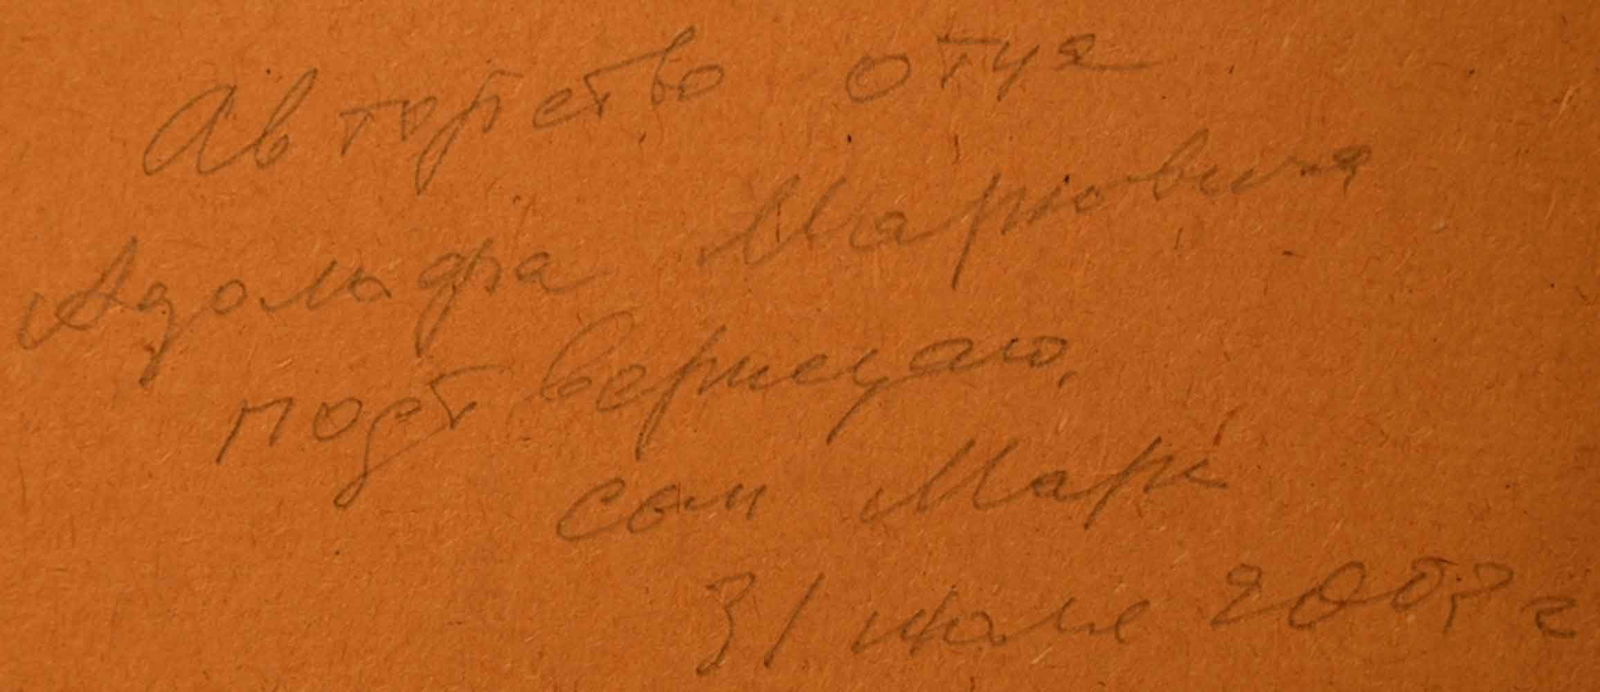 Авторство отца
Адольфа Марковича
подтверждаю,
сын Марк
31 июля 2003 г